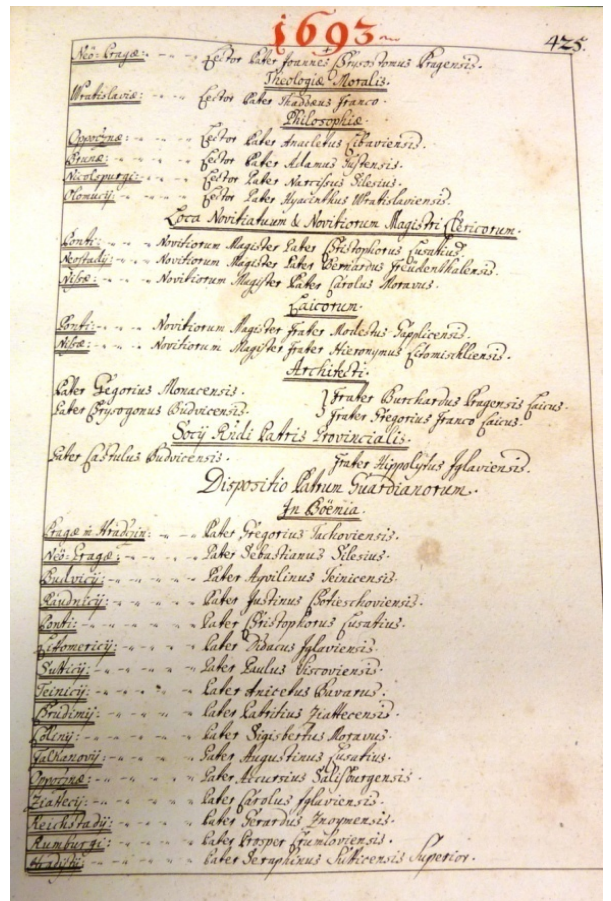 1693
425.
Neo-Pragæ: Lector Pater Joannes Chrysostomus Pragensis.
Theologiæ Moralis.
Wratislaviæ: Lector Pater Thadæus Franco.
Philosophiæ.
Oppočnæ: Lector Pater Anacletus Libaviensis.
Brunæ: Lector Pater Adamus
Nicolspurgi: Lector Pater Narcissus Silesius.
Olomucij: Lector Pater Hyacinthus Wratislaviensis.
Loca Novitiatuum & Novitiorum Magistri Clericorum.
Ponti: Novitiorum Magister Pater Christophorus Lusatius.
Neostadij: Novitiorum Magister Pater Bernardus Freudenthalensis.
Nißæ: Novitiorum Magister Pater Carolus Moravus.
Laicorum.
Ponti: Novitiorum Magister Frater Modestus
Nißæ: Novitiorum Magister Frater Hieronymus Litomischliensis.
Architecti.
Pater Gregorius Monacensis. Frater Burchardus Pragensis Laicus.
Pater Chrysogonus Budvicensis. Frater Gregorius Franco Laicus.
Socij Rñdi Patris Provincialis.
Pater Castulus Budvicensis. Frater Hippolytus Iglaviensis.
Dispositio Patrum Guardianorum.
In Böemia.
Pragæ in Hradczin: Pater Gregorius Tachoviensis.
Neö-Pragæ: Pater Sebastianus Silesius.
Budvicij: Pater Aqvilinus Teinicensis.
Raudnicij: Pater Justinus
Ponti: Pater Christophorus Lusatius.
Litomericij: Pater Didacus Iglaviensis.
Sutticij: Pater Paulus
Teinicij: Pater Anicetus Bavarus.
Chrudimij: Pater Patritius Ziattecensis.
Colinij: Pater Sigisbertus Moravus.
Falkanovij: Pater Augustinus Lusatius.
Oppočnæ: Pater Accursius Salisburgensis.
Ziattecij: Pater Carolus Iglaviensis.
Reichstadij: Pater Gerardus Znoymensis.
Rumburgi: Pater Prosper Crumloviensis.
Hradistij: Pater Seraphinus Sutticensis Superior.